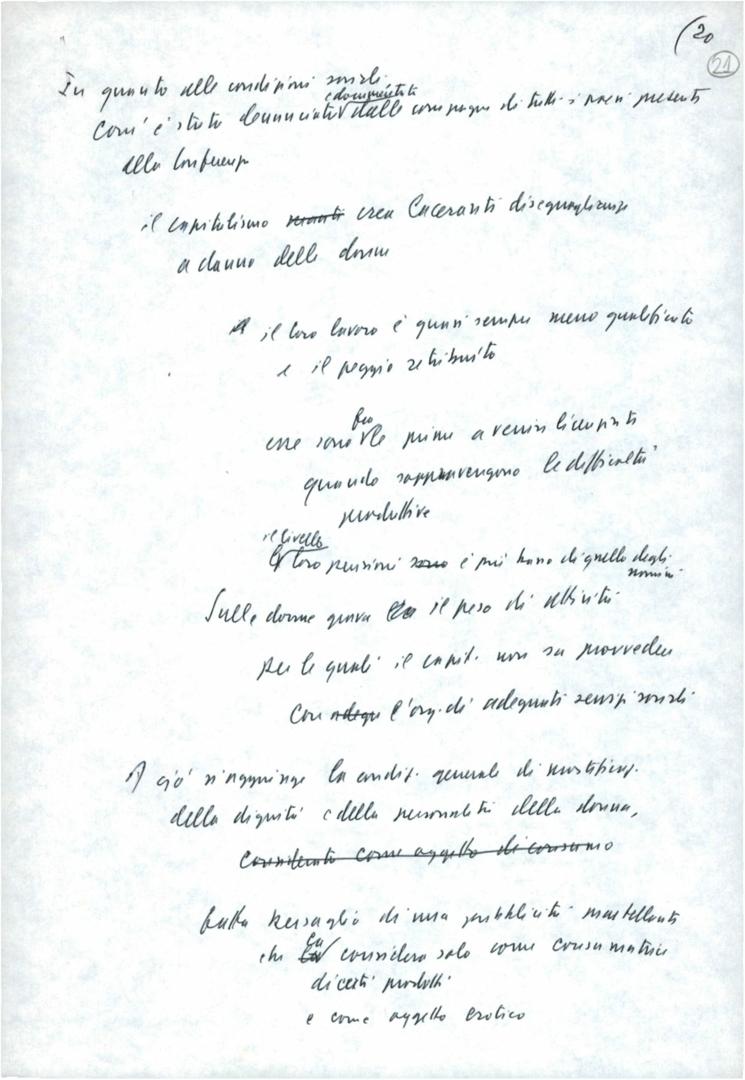 (20
21
In quanto alle condizioni sociali
e documentato
com'è stato denunciato dalle compagne di tutti i paesi presenti
alla Conferenza
il capitalismo crea laceranti diseguaglianze
a danno delle donne
il loro lavoro è quasi sempre meno qualificato
e il peggio retribuito
fra
esse sono le prime a venir licenziate
quando sopravvengono le difficoltà
produttive
il livello
loro pensioni sono è più basso di quello degli
uomini
Sulle donne grava il peso di attività
per le quali il capit. non sa provvedere
con adegu l'org. di adeguati servizi sociali
A ciò s'aggiunge la condiz. generale di mortificaz.
della dignità e della personalità della donna,
considerata come oggetto di consumo
fatta bersaglio di una pubblicità martellante
la
che la considera solo come consumatrice
di certi prodotti
e come oggetto erotico